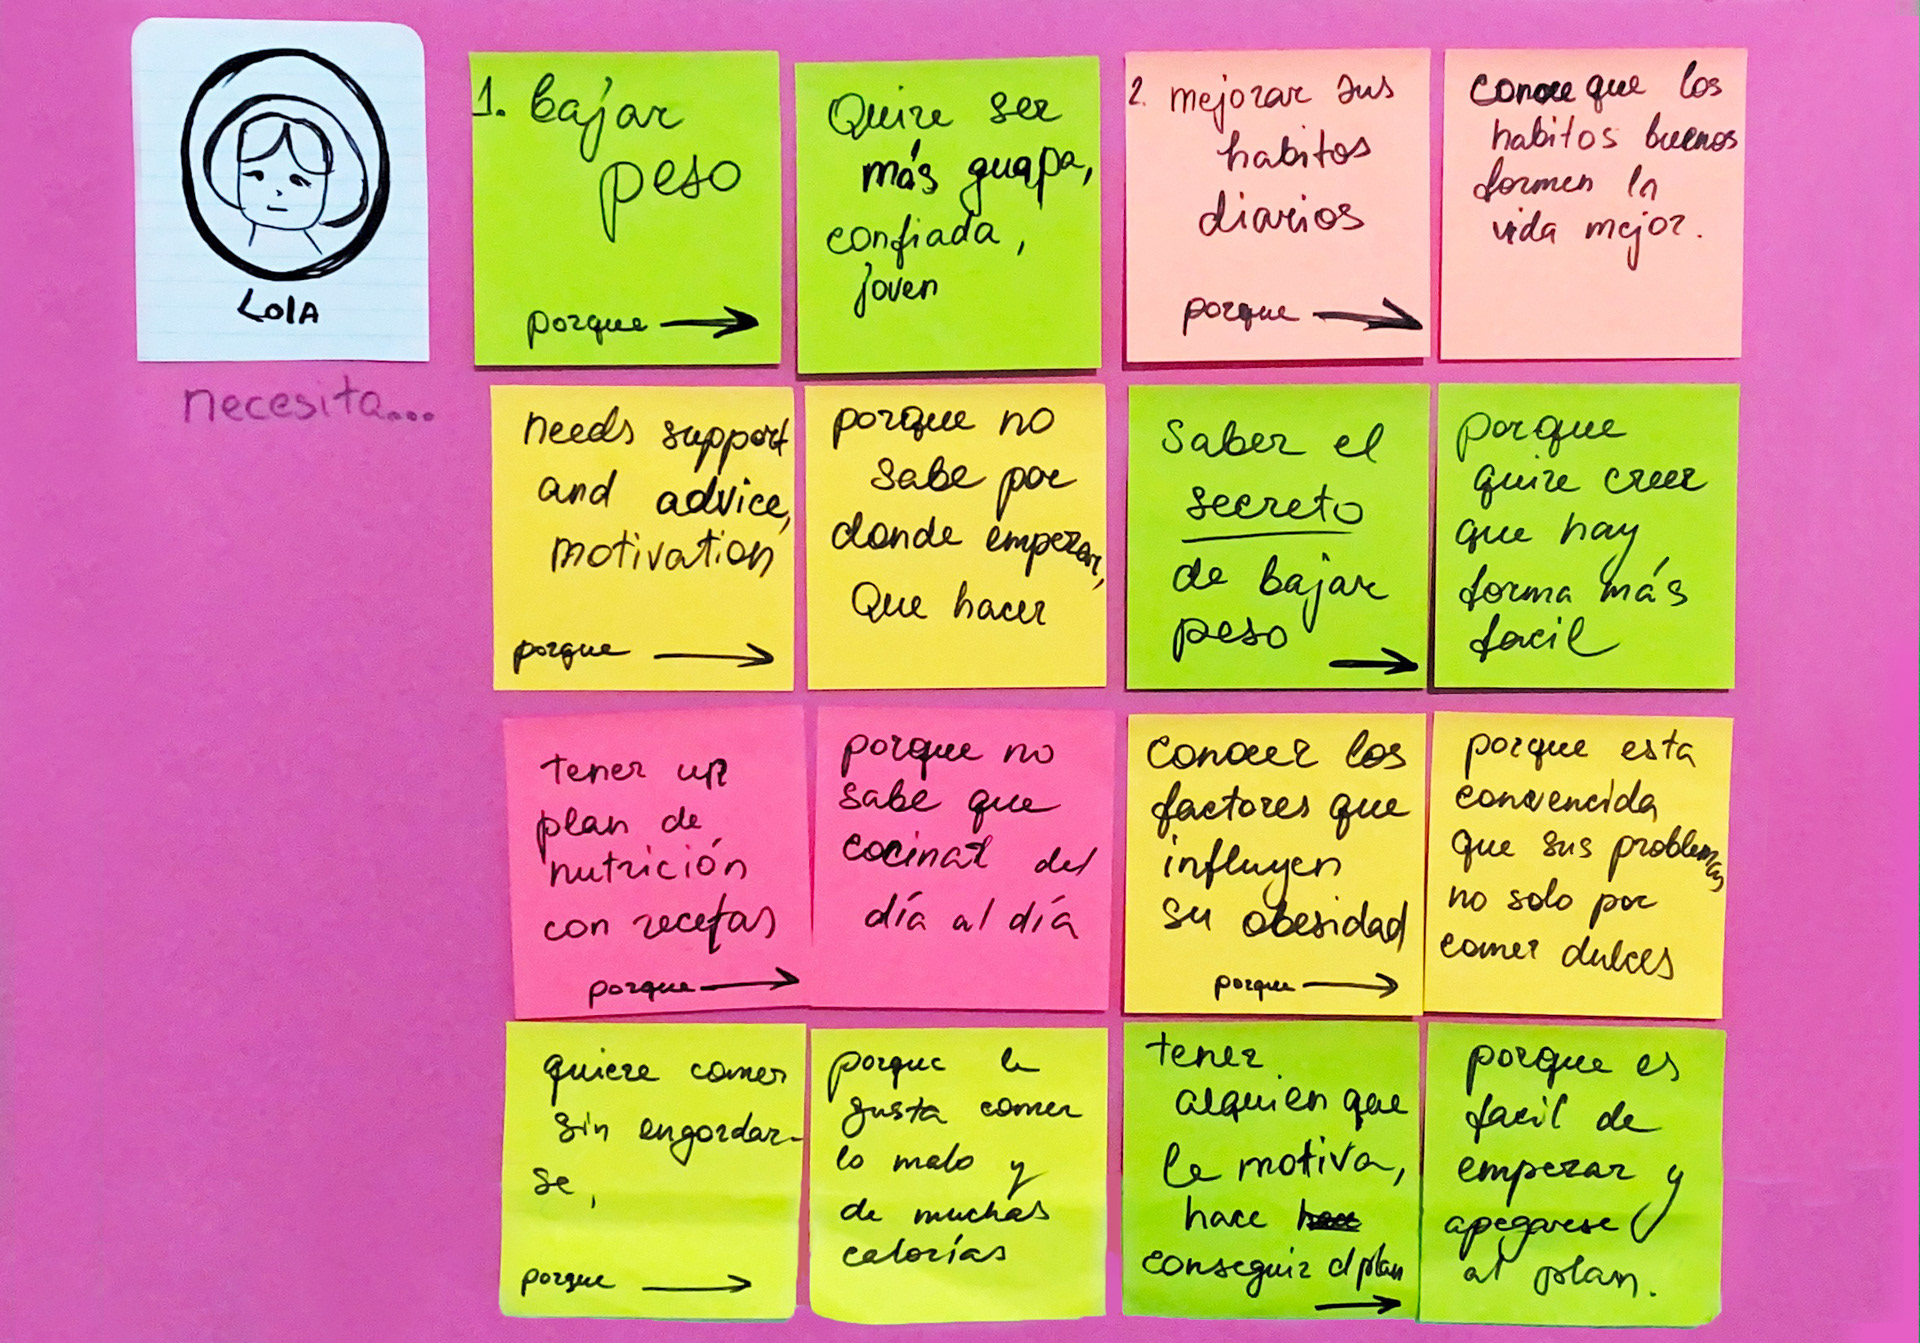 LolA
necesita...
1. bajar
peso
porque
Quire ser
más guapa,
confiada,
joven
2. mejorar sus
habitos
diarios
porque
conoce que los
habitos buenos
formen la
vida mejor.
needs support
and advice,
motivation
porque
porque no
sabe por
donde empezar,
Que hacer
Saber el
secreto
de bajar
peso
porque
quire creer
que hay
forma más
facil
tener un
plan de
nutrición
con recetas
porque
porque no
sabe que
cocinar del
día al día
conocer los
factores que
influyen
su obesidad
porque
porque esta
convencida
que sus problemas
no solo por
comer dulces
quiere comer
sin engordar-
se,
porque
porque le
gusta comer
lo malo y
de muchas
calorías
tener
alguien que
le motiva,
hace
conseguir el plan
porque es
facil de
empezar y
apegarese
al plan.